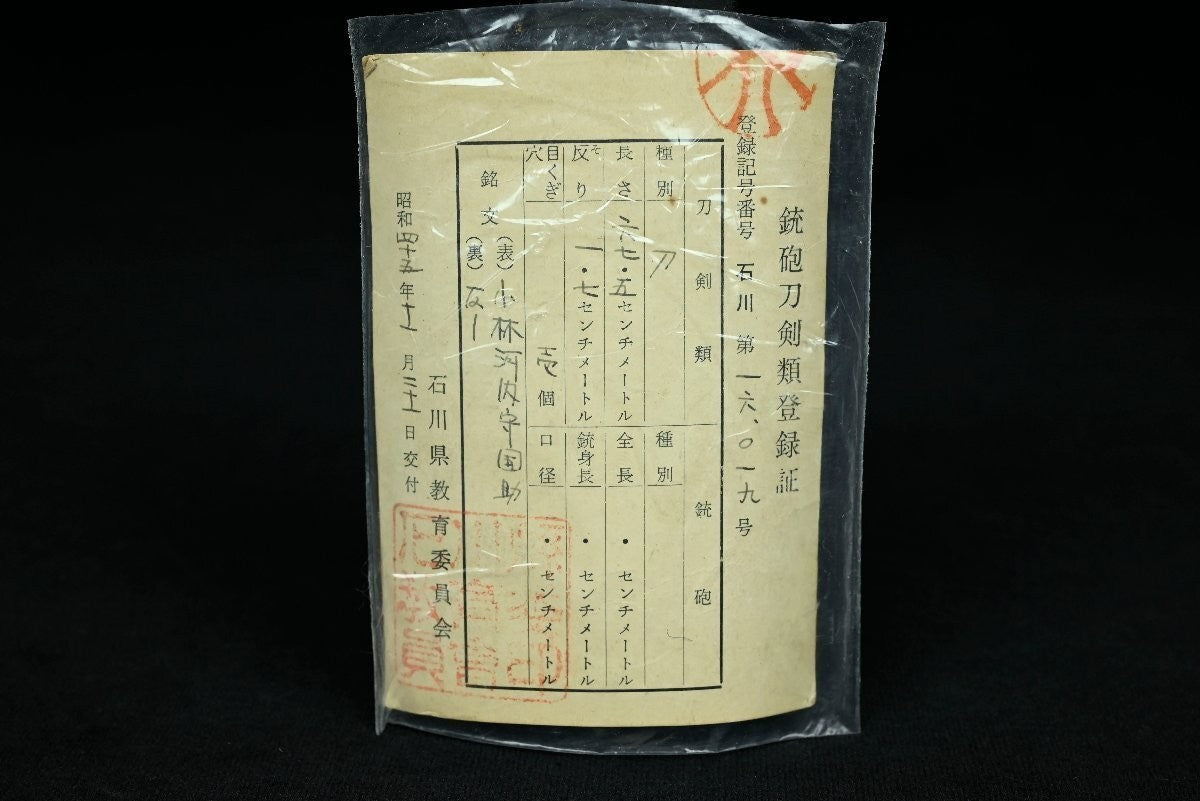 銃砲刀剣類登録証
登録記号番号 石川 第一六、〇一九号
刀剣類
種別 刀
長さ 六七・五センチメートル
反り そ 一・七センチメートル
目くぎ穴 壱個
銃砲
種別
全長 ・センチメートル
銃身長 ・センチメートル
口径 ・センチメートル
銘文 (表) 小林河内守国助
(裏) なし
石川県教育委員会
昭和四十五年十一月二十一日交付